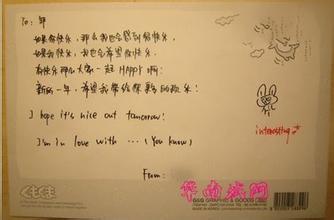 To: 郭
如果你快乐, 那么我也会感到很快乐
如果我快乐, 我也会希望你快乐
有快乐那么大家一起 HAPPY 啊!
新的一年, 希望我带给你更多的欢乐!
I hope it's nice out tomorrow!
I'm in love with ··· (You know)
interesting
From:
G&G GRAPHIC & GOODS
华南城网